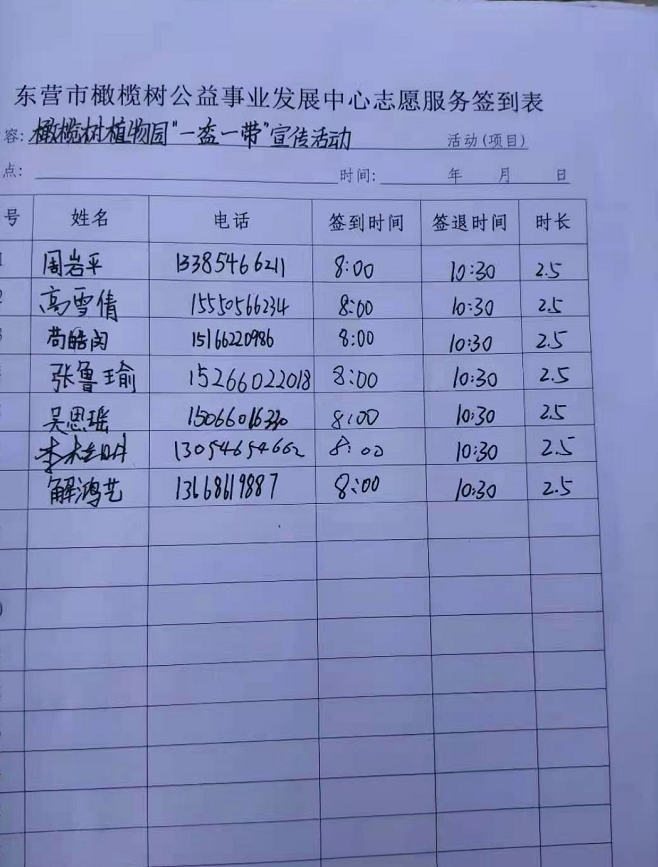 东营市橄榄树公益事业发展中心志愿服务签到表
容: 橄榄树植物园"一盔一带"宣传活动 活动(项目)
点: 时间: 年 月 日
号 姓名 电话 签到时间 签退时间 时长
1 周岩平 13385466211 8:00 10:30 2.5
2 高雪倩 15550566234 8:00 10:30 2.5
3 苟皓闵 15166220986 8:00 10:30 2.5
张鲁瑜 15266022018 8:00 10:30 2.5
吴思瑶 15066016330 8:00 10:30 2.5
13054654662 8:00 10:30 2.5
解鸿艺 13668619887 8:00 10:30 2.5